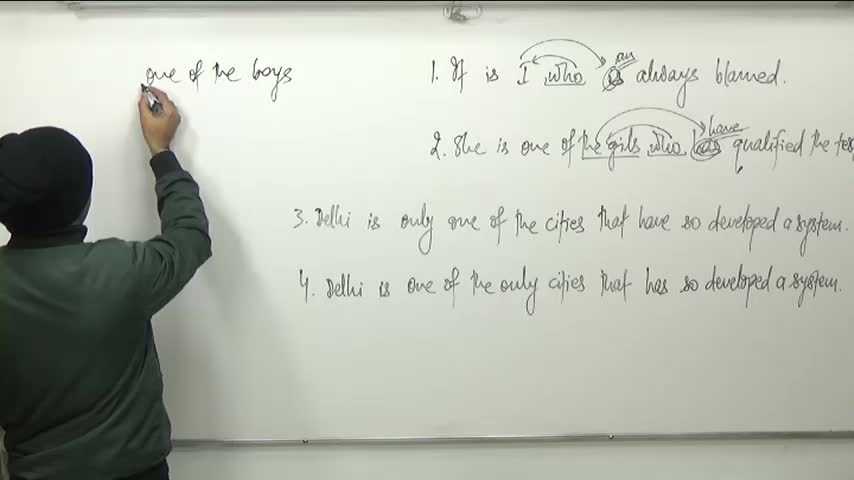 one of the boys
1. It is I who is am always blamed.
2. She is one of the girls who has have qualified the
3. Delhi is only one of the cities that have so developed a system.
4. Delhi is one of the only cities that has so developed a system.